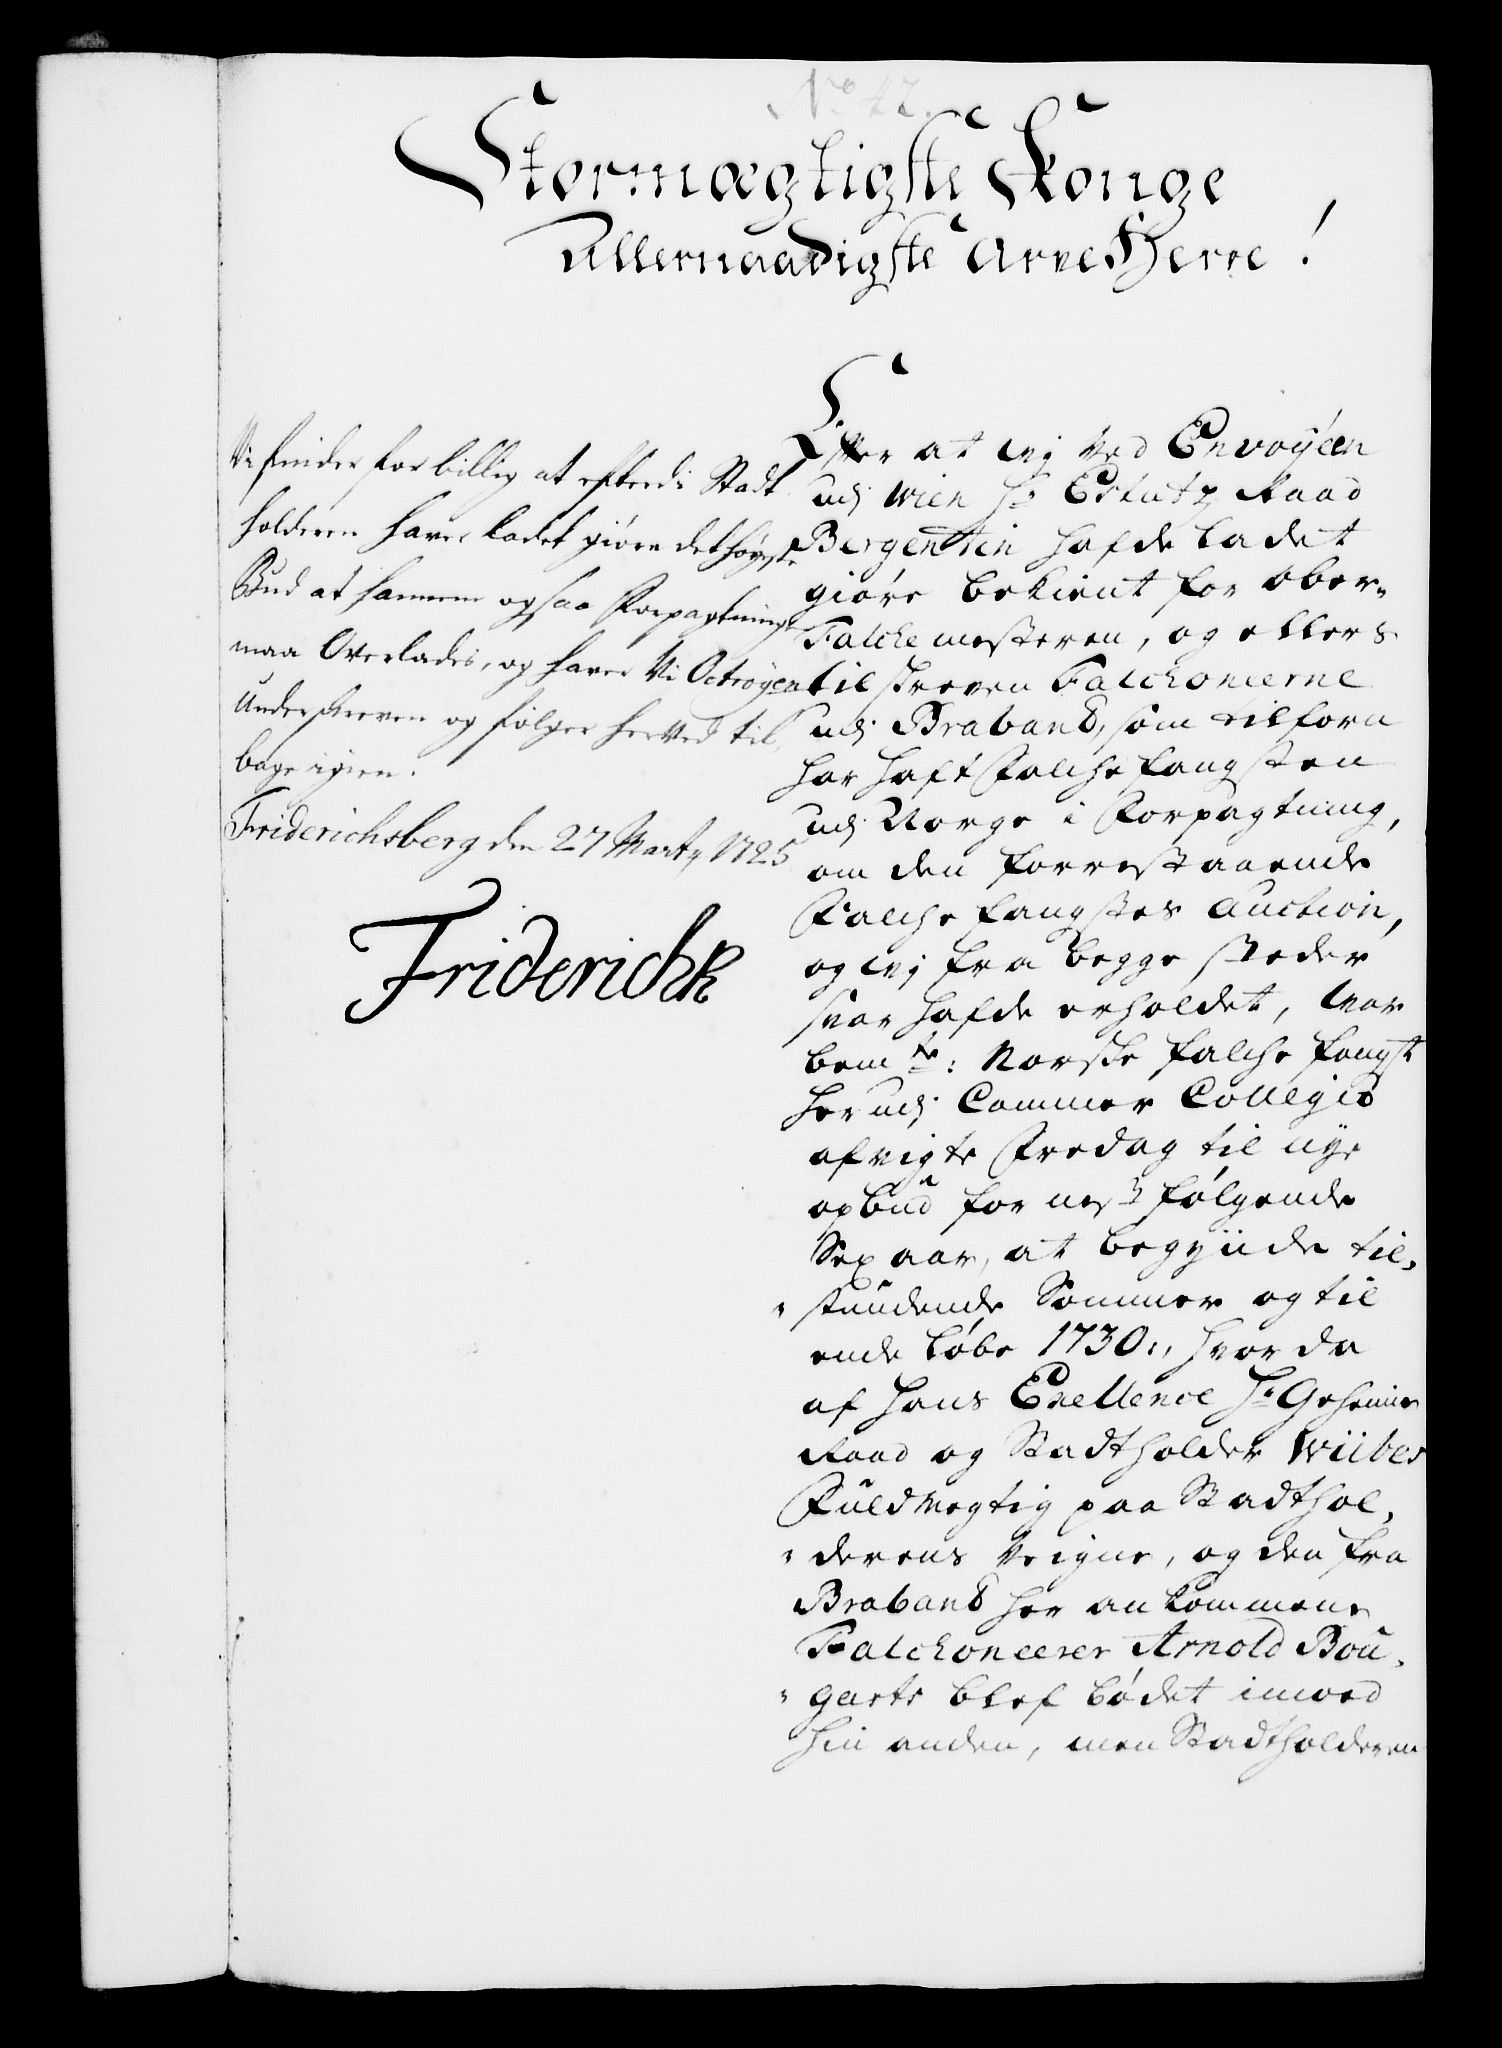 No 42.
Stormægtigste Konge
Allernaadigste Arve Herre!
Vi finder for billig at efterdi Stadt
holderen haver ladet giøre det høyeste
Bud at hannem ogsaa Forpagtningen
maa Overlades, og haver Vi Octroyen
Underskreven og følger herved til,
bage igien.
Friderichsberg den 27 Marty 1725
Friderich R
Efter at wj ved Envoyéen
udj Wien Hr. Estatz Raad
Bergentin hafde ladet
giøre bekient for ober-
Falchemesteren, og ellers
tilskreven Falchonierne
udj Braband, som tilforn
har haft Falche fangsten
udj Norge i Forpagtning,
om den forrestaaende
Falche fangstes Auction,
og wj fra begge steder
svar hafde erholdet, war
bemte: Norske falche fangst
her udj Cammer Collegio
afvigte Fredag til nye
opbud for nest følgende
Sex aar, at begynde til,
stundende Sommer og til
ende løbe 1730., hvor da
af Hans Exellence Hr. Geheime
Raad og Stadtholder Wiibes
Fuldmegtig paa Stadthol,
derens Veigne, og den fra
Braband her ankommene
Falchoneerer Arnold Bou,
garts blef bødet imod
hin anden, men Stadtholderen